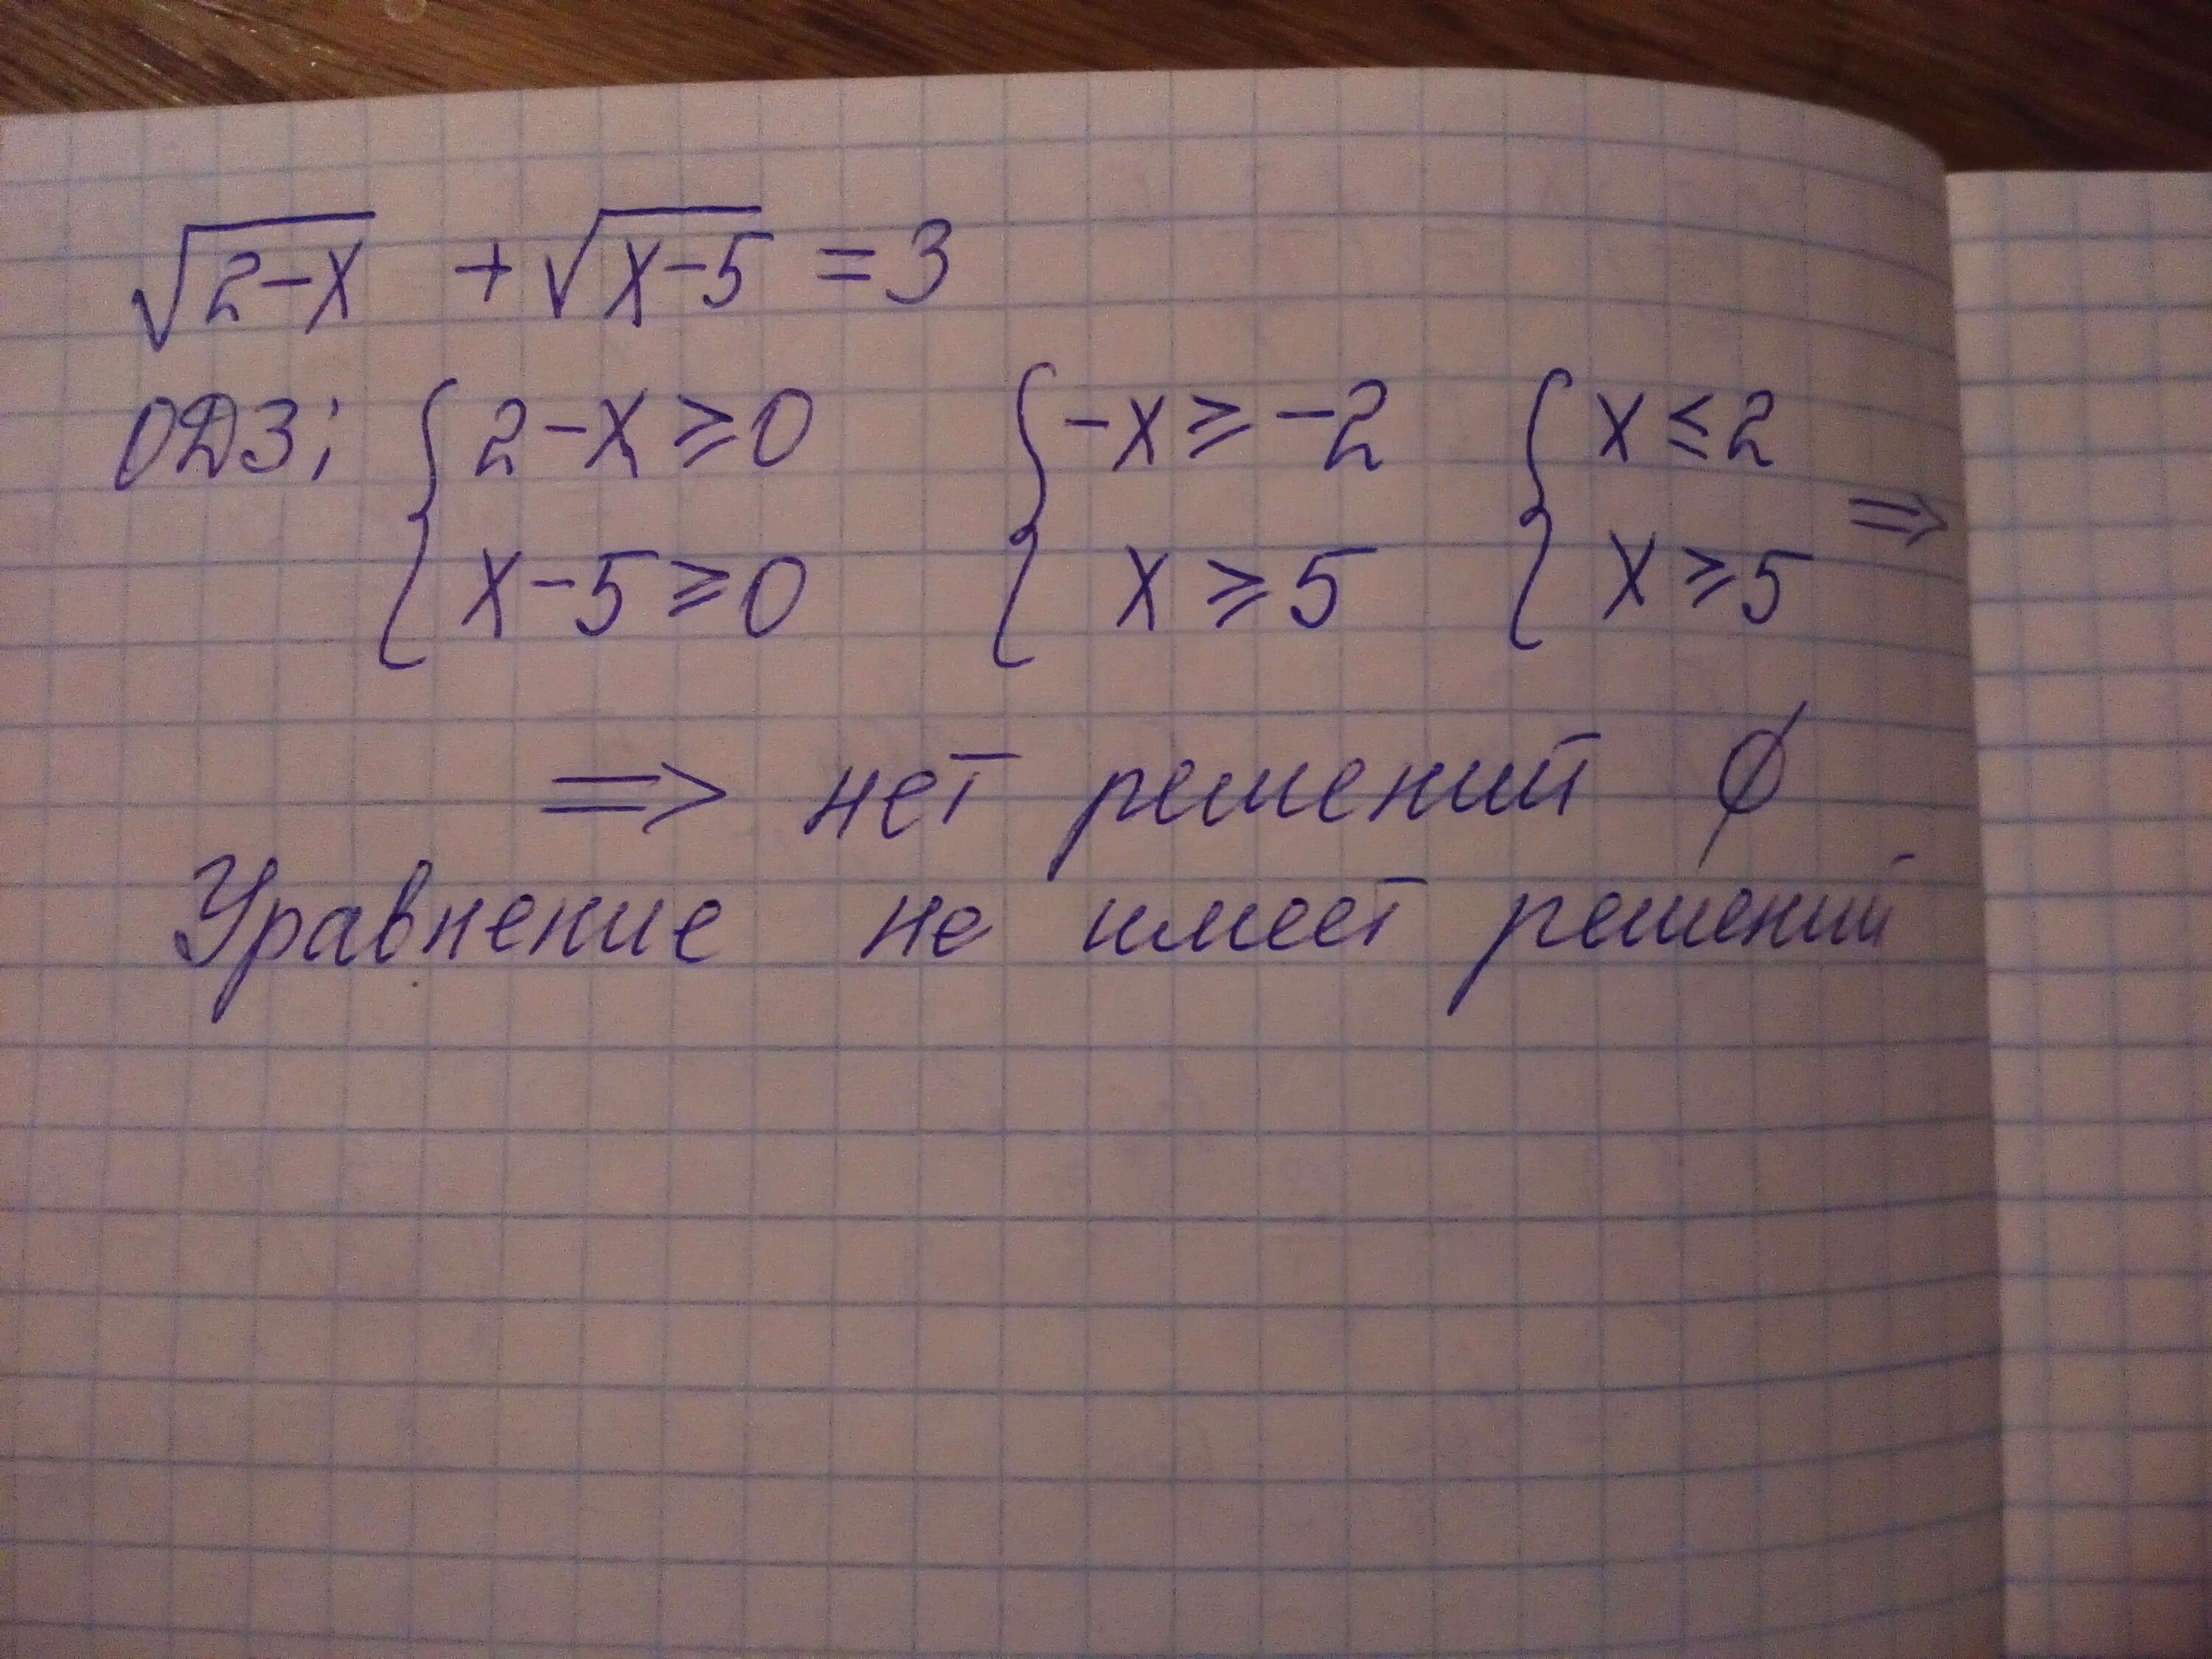 √(2-x) + √(x-5) = 3
ОДЗ: { 2-x ≥ 0 { -x ≥ -2 { x ≤ 2
x-5 ≥ 0 x ≥ 5 x ≥ 5 ⇒
⇒ нет решений ∅
Уравнение не имеет решений